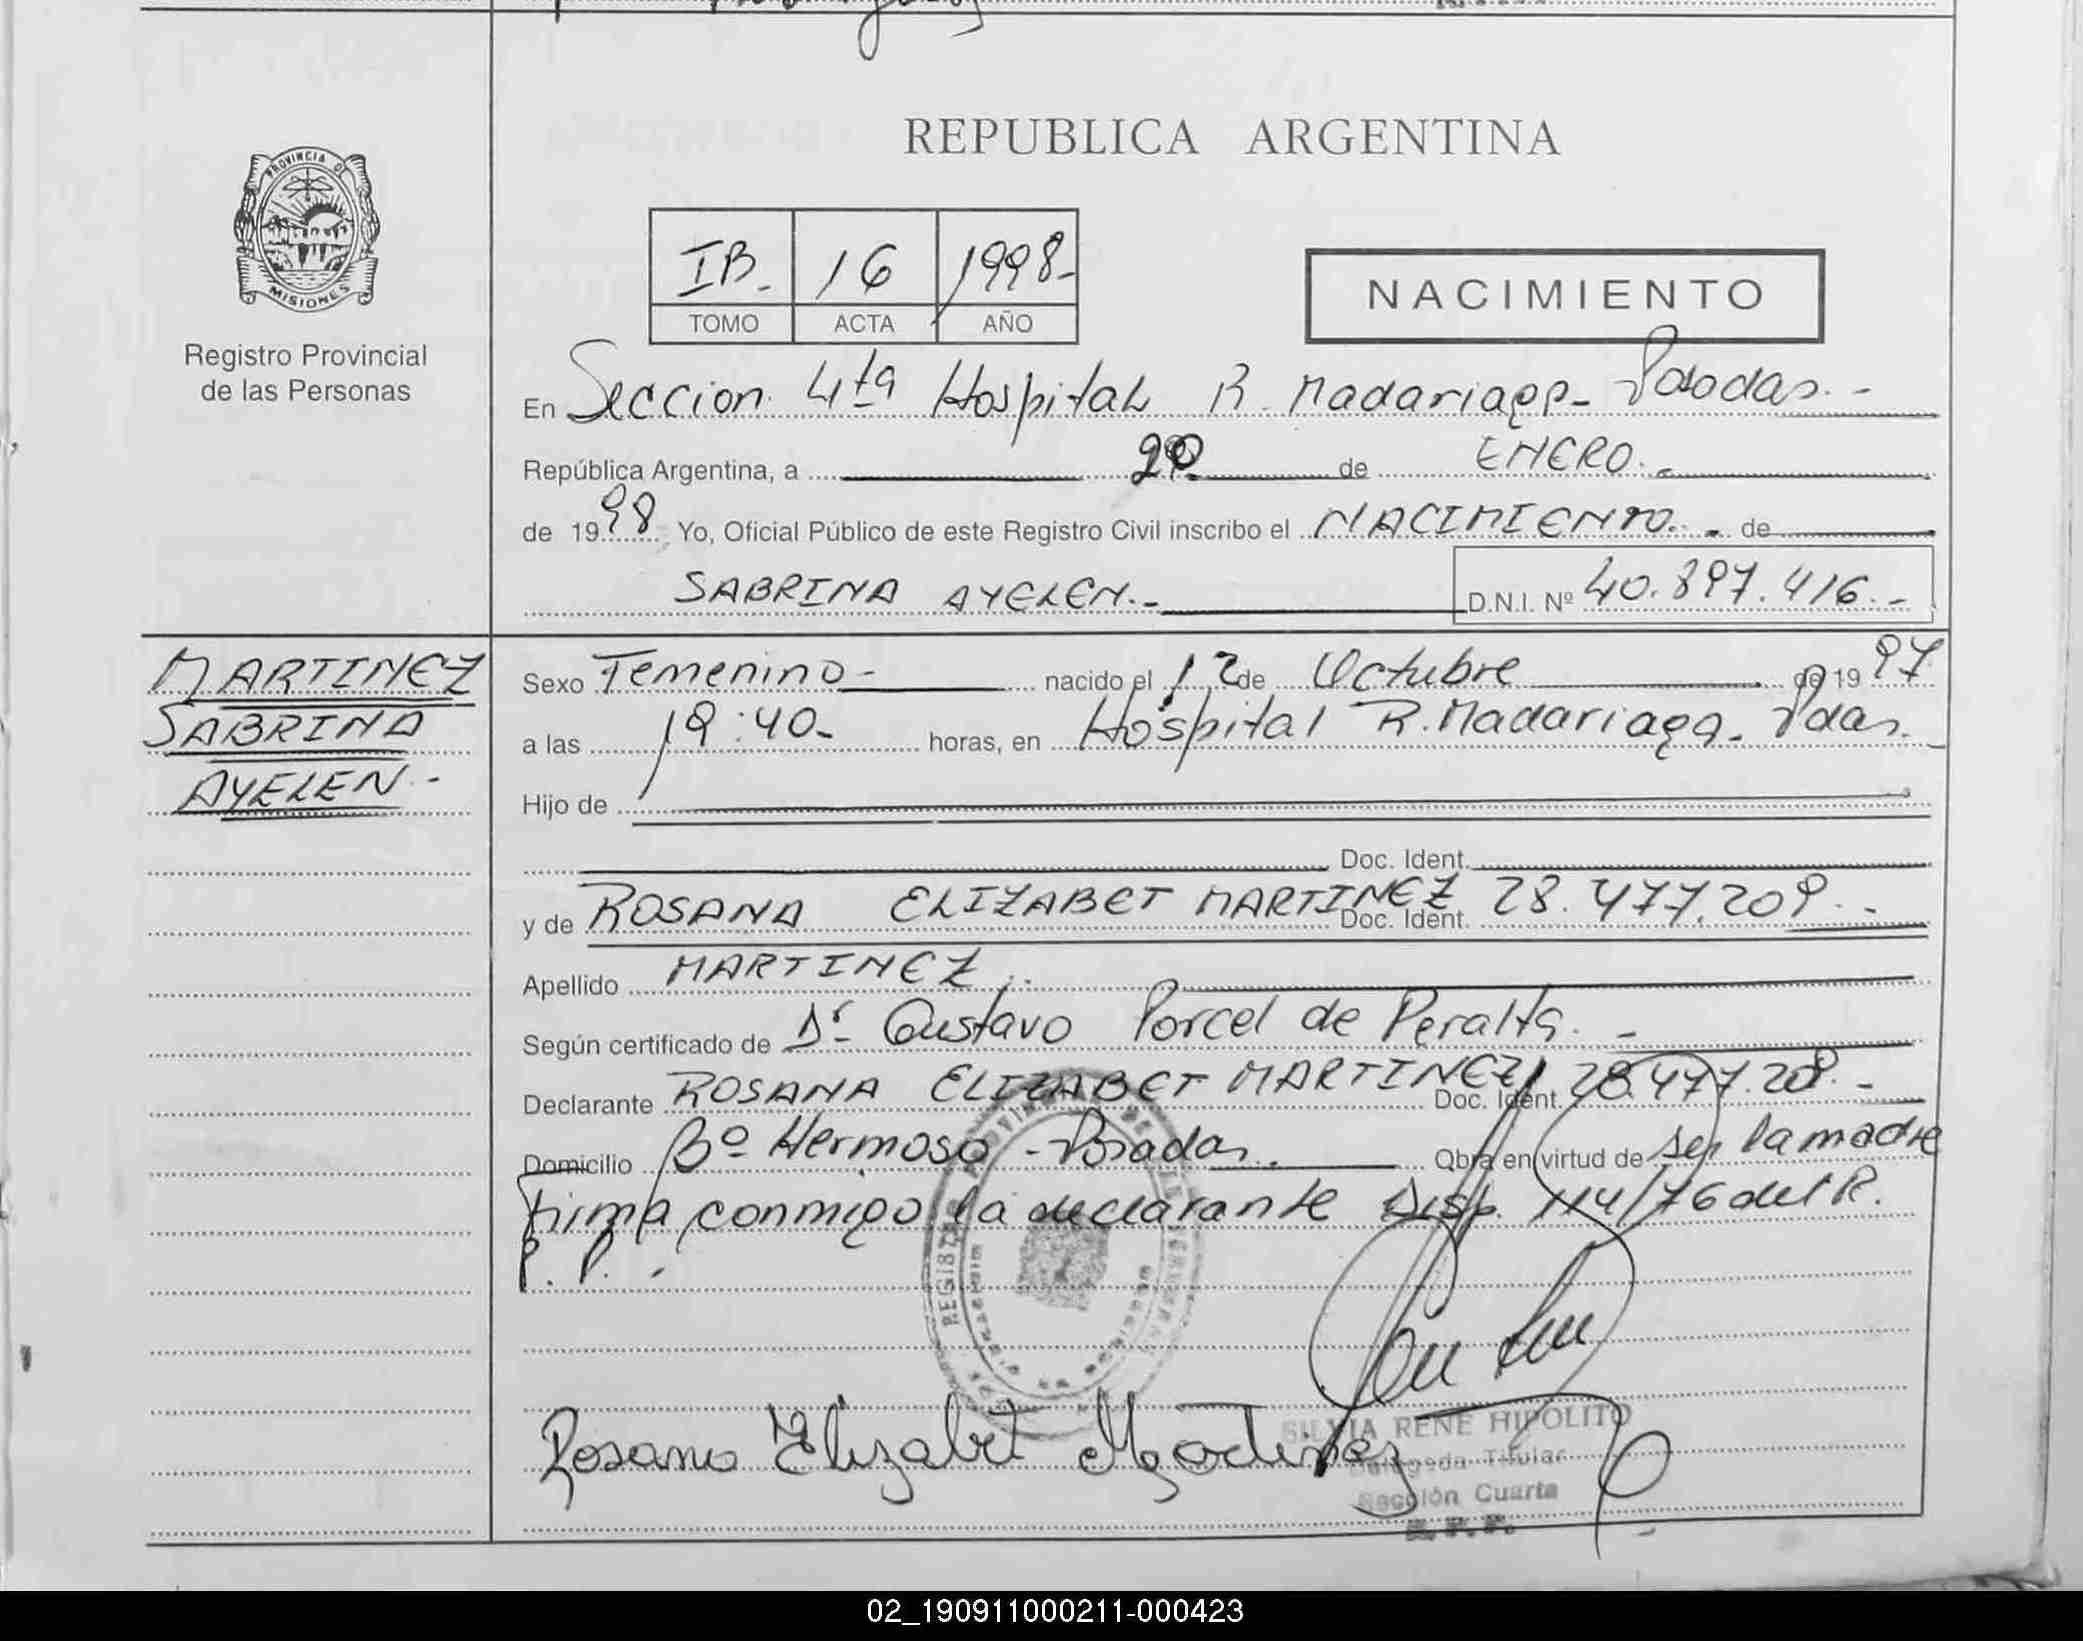 REPUBLICA ARGENTINA
PROVINCIA DE
MISIONES
Registro Provincial
de las Personas
IB. 16 1998-
TOMO ACTA AÑO
NACIMIENTO
En Seccion 4ta Hospital R. Madariaga- Posadas.-
República Argentina, a de ENERO.-
de 1998 Yo, Oficial Público de este Registro Civil inscribo el NACIMIENTO.- de
SABRINA AYELEN.- D.N.I. Nº 40.897.416.-
MARTINEZ
SABRINA
AYELEN.-
Sexo Femenino- nacido el 12 de Octubre de 1997
a las 19:40- horas, en Hospital R. Madariaga- Pdas.
Hijo de
Doc. Ident.
y de ROSANA ELIZABET MARTINEZ Doc. Ident. 28.477.209.-
Apellido MARTINEZ.
Según certificado de Dr. Gustavo Porcel de Peralta.-
Declarante ROSANA ELIZABET MARTINEZ Doc. Ident. 28.477.209.-
Domicilio Bº Hermoso - Posadas. Obra en virtud de ser la madre
Firma conmigo la declarante Disp. 114/76 del R.
P. P.
Rosana Elizabet Martinez
SILVIA RENE HIPOLITO
Delegada Titular
Sección Cuarta
R. P. P.
02_190911000211-000423